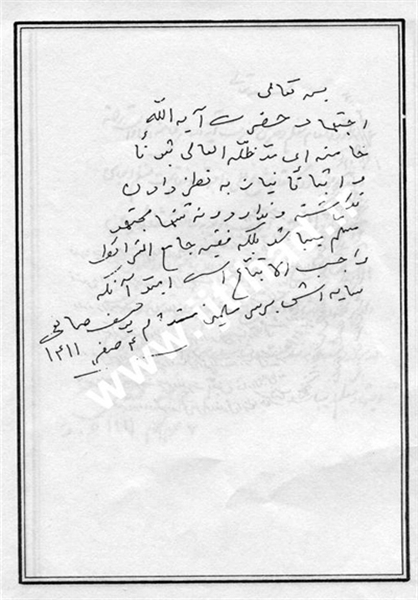 بسمه تعالی
اجتهاد حضرت آیه الله
خامنه ای مد ظله العالی ثبوتاً
و اثباتاً نیاز به نظر دادن
نداشته و ندارد و نه تنها مجتهد
مسلم میباشد بلکه فقیه جامع الشرائط
واجب الاتباع است امید آنکه
سایه اش بر سر مسلمین مستدام یوسف صانعی
۴ صفر ۱۴۱۱
www.